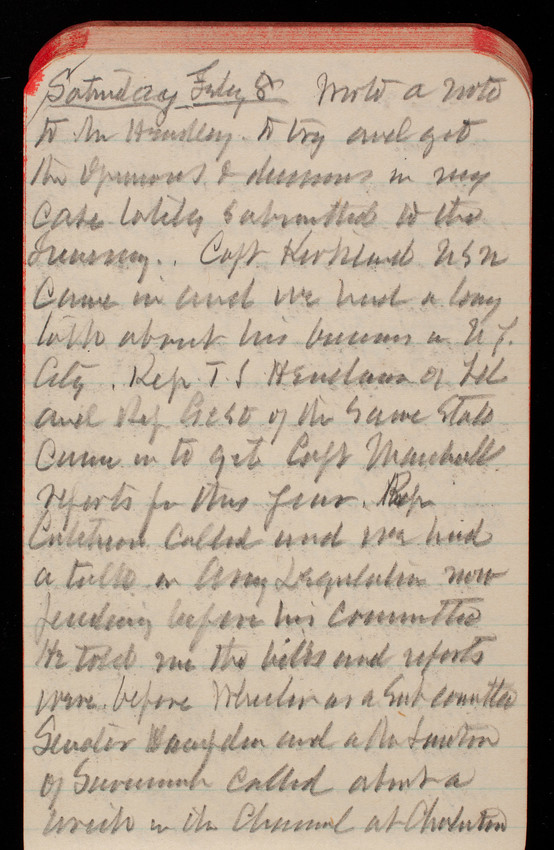 Saturday Feby 8 Wrote a note
to Mr Handley to try and get
the opinions & decisions in my
case lately submitted to the
Treasury. Capt Kirkland USN
Came in and we had a long
talk about his business in N.Y.
City. Rep T J Henderson of Ill
and Rep Gest of the Same State
Came in to get Capt Marshall
reports for this year. Rep
Cutcheon Called and we had
a talk on Army Legislation now
pending before his Committee
He told me the bills and reports
were before Wheeler as a Sub committee
Senator and a Mr Lawton
of Savannah called about a
wreck in the Channel at Charleston